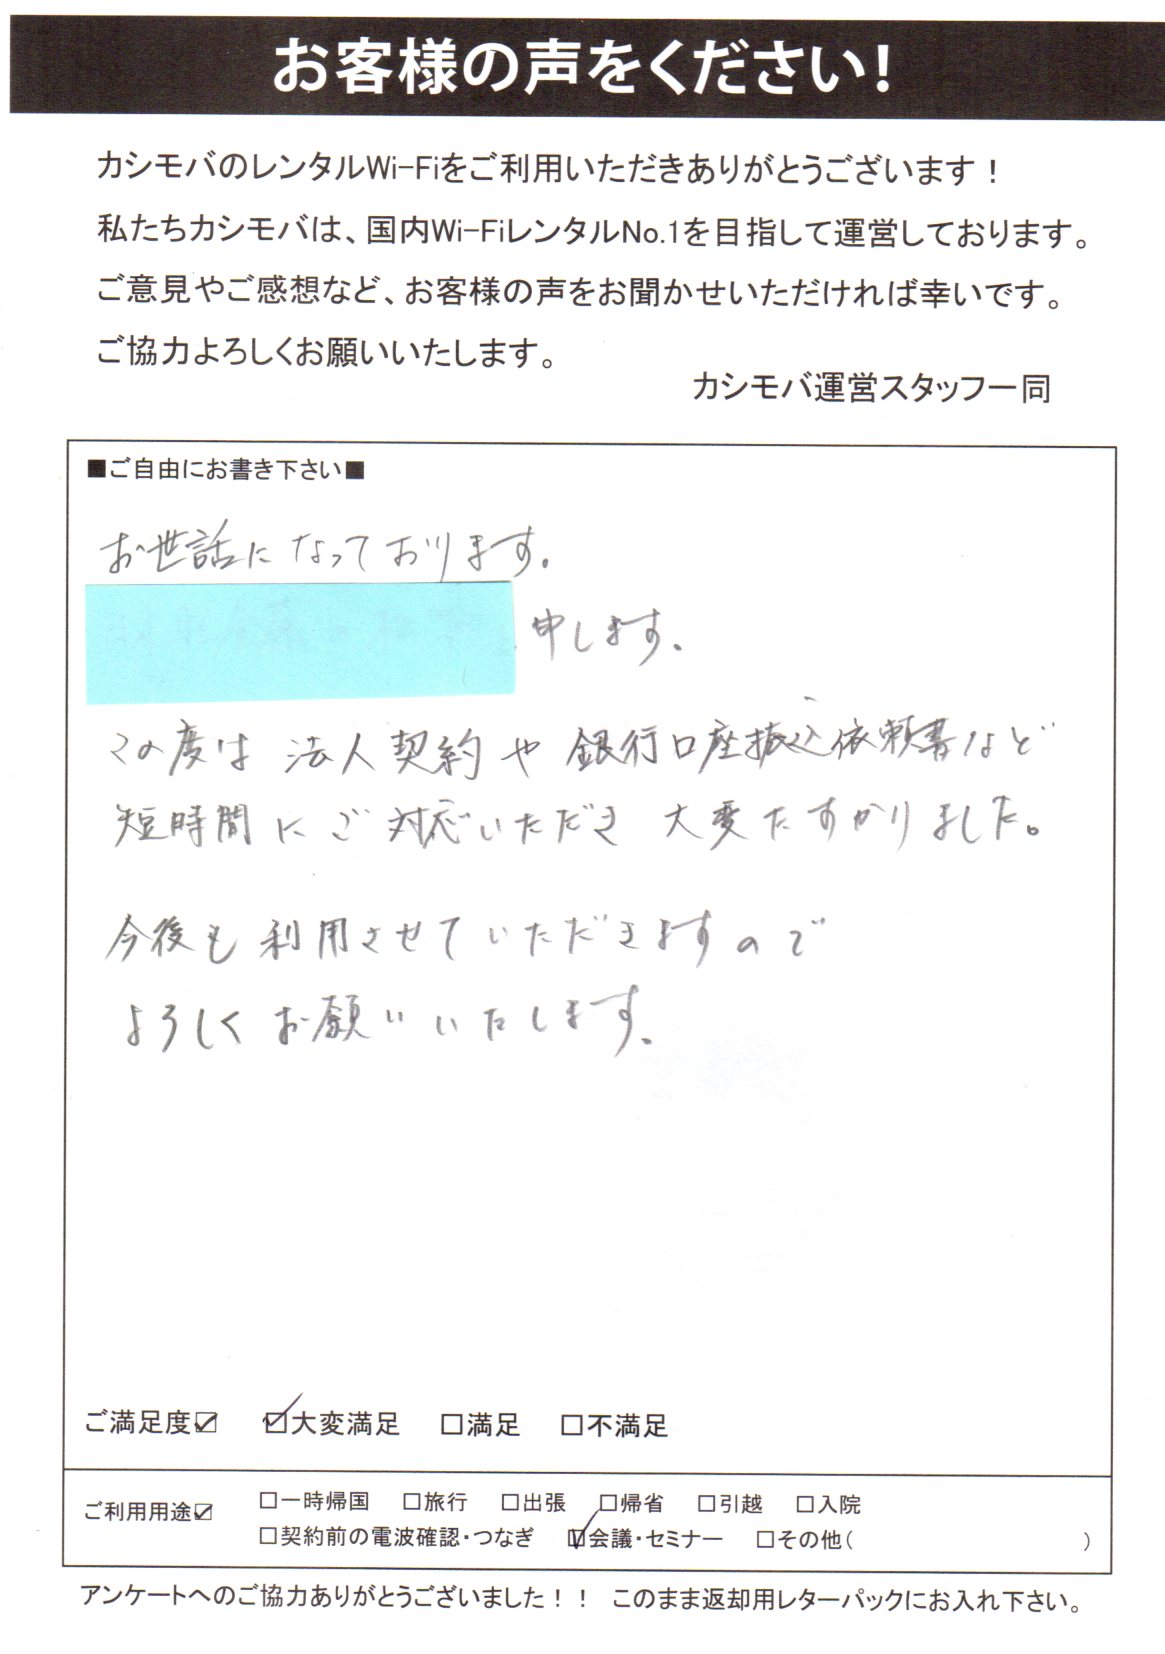 お客様の声をください！
カシモバのレンタルWi-Fiをご利用いただきありがとうございます！
私たちカシモバは、国内Wi-FiレンタルNo.1を目指して運営しております。
ご意見やご感想など、お客様の声をお聞かせいただければ幸いです。
ご協力よろしくお願いいたします。
カシモバ運営スタッフ一同
■ご自由にお書き下さい■
お世話になっております。
申します。
この度は 法人契約や 銀行口座振込依頼書など
短時間に ご対応いただき 大変たすかりました。
今後も 利用させていただきますので
よろしくお願いいたします。
ご満足度☑ ☑大変満足 □満足 □不満足
ご利用用途☑ □一時帰国 □旅行 □出張 □帰省 □引越 □入院
□契約前の電波確認・つなぎ ☑会議・セミナー □その他( )
アンケートへのご協力ありがとうございました！！ このまま返却用レターパックにお入れ下さい。